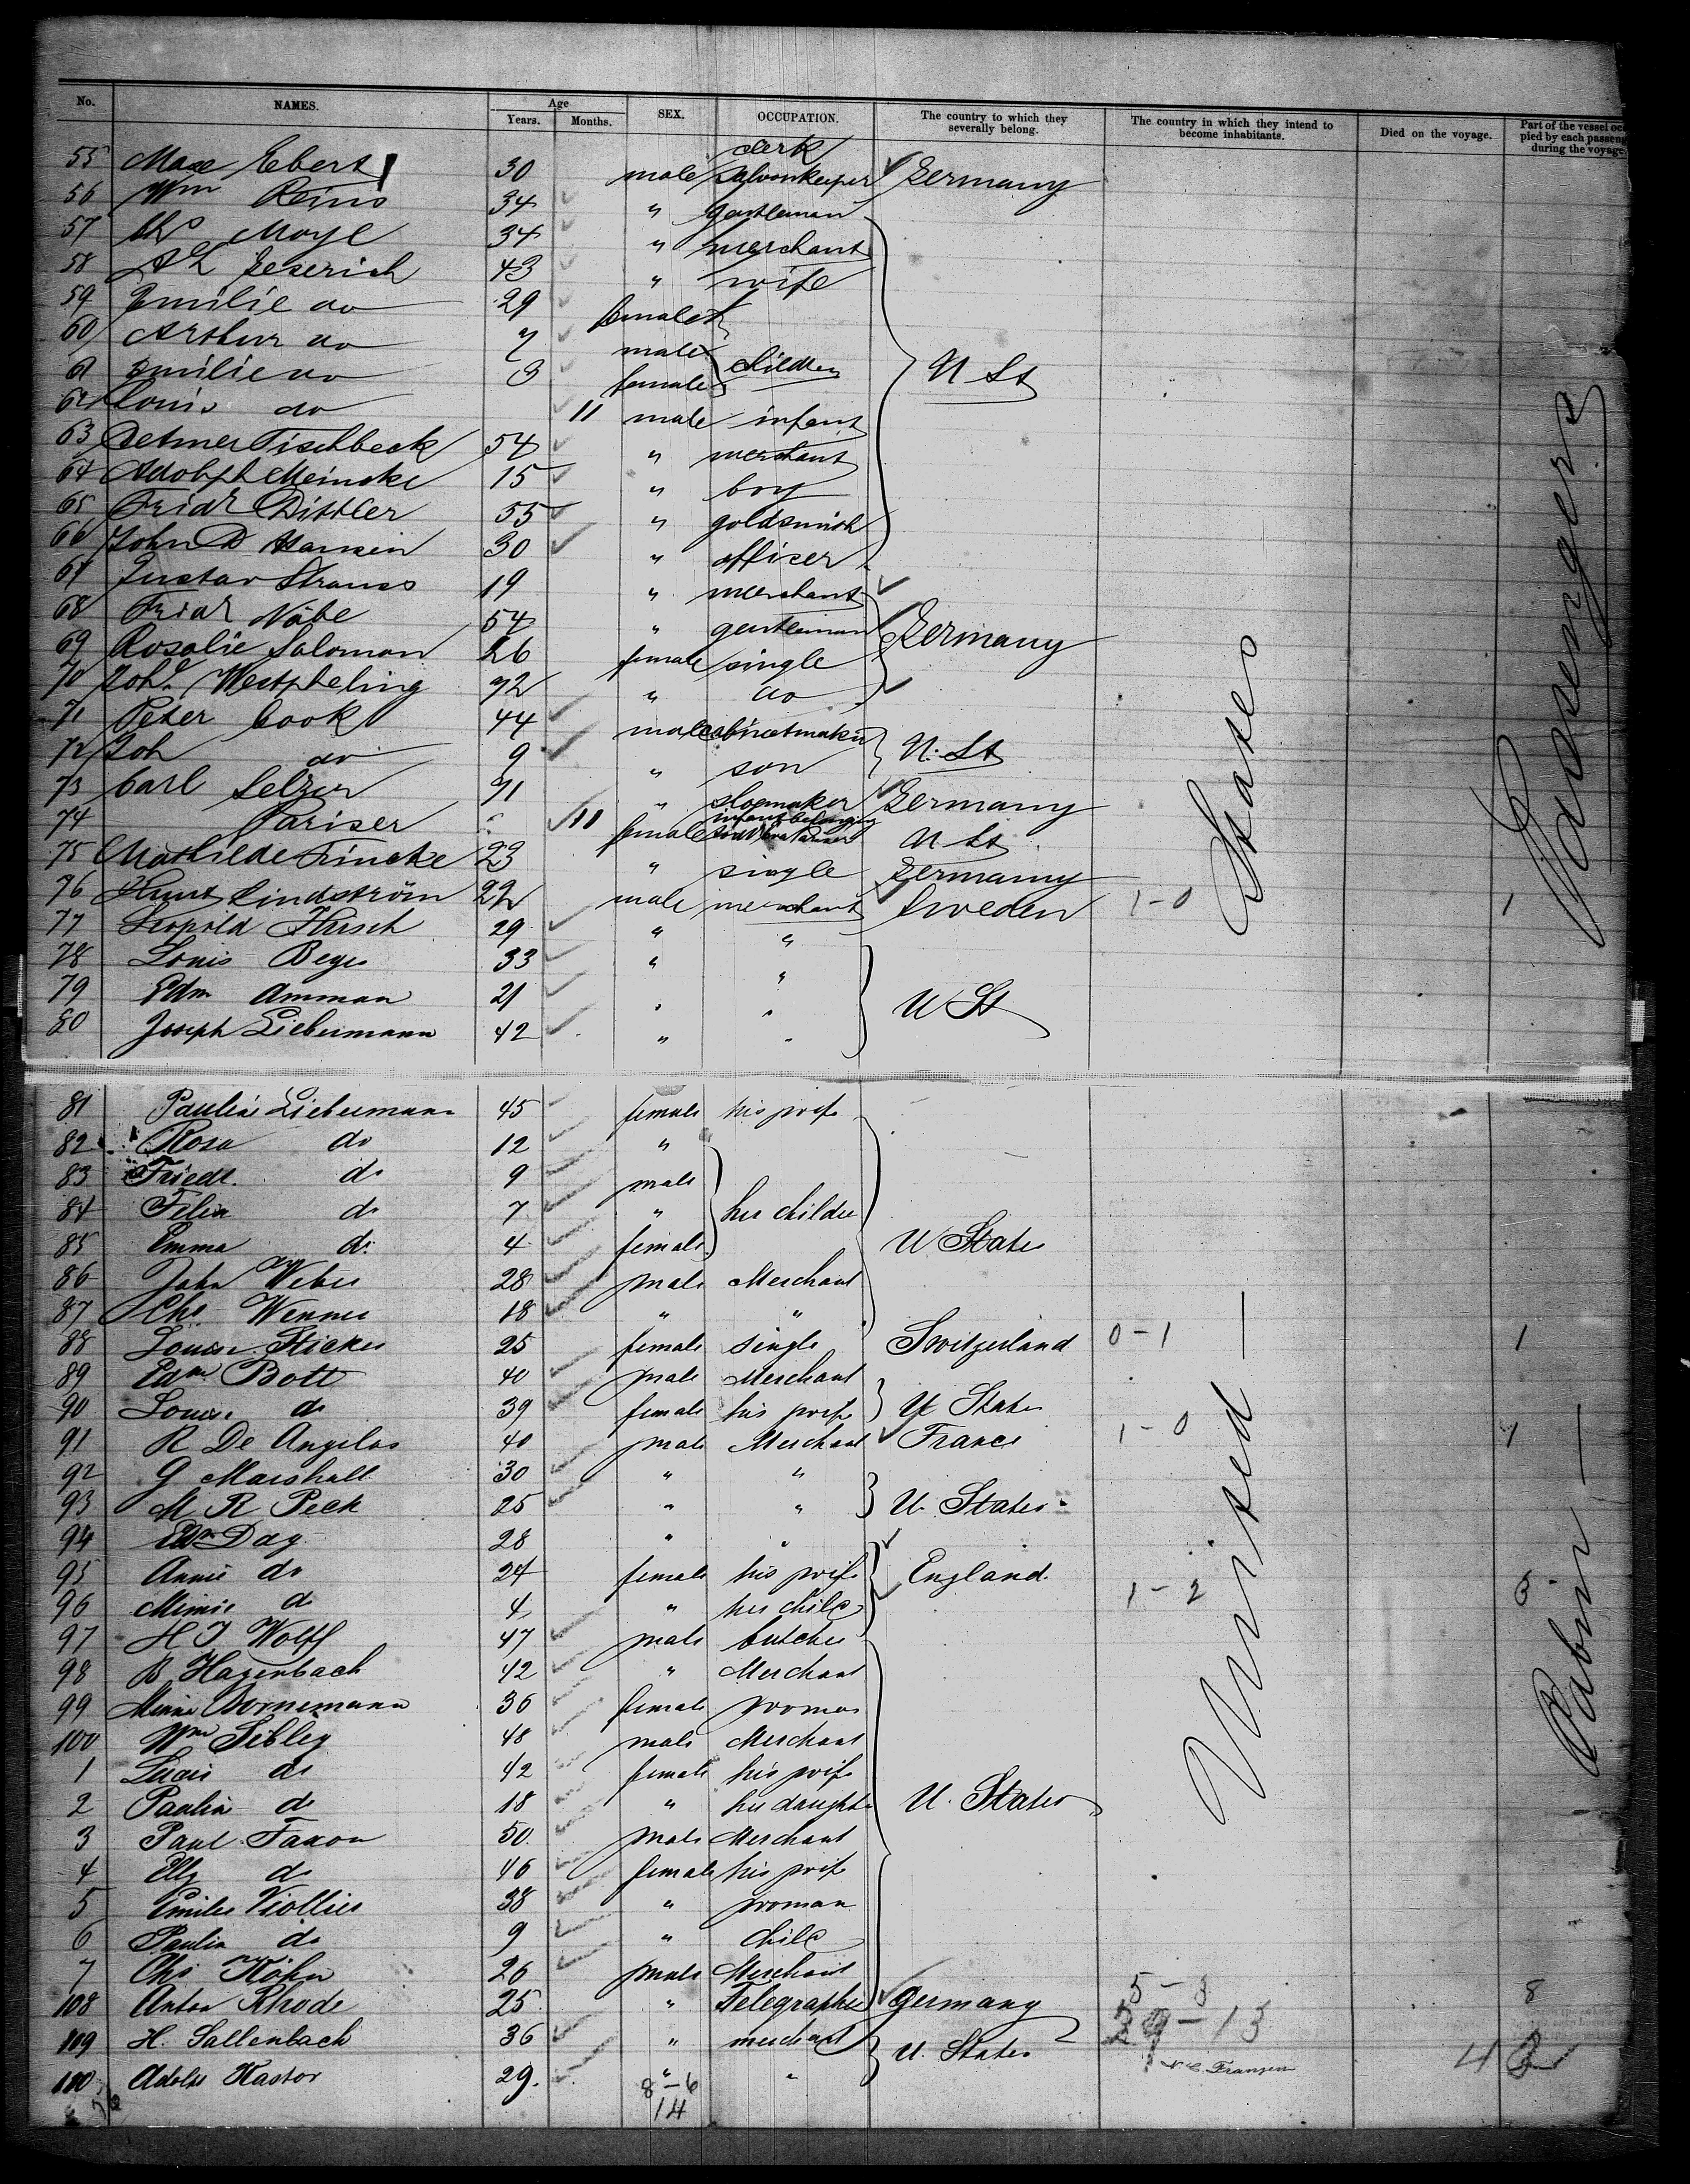 No. NAMES. Age Years. Months. SEX. OCCUPATION. The country to which they severally belong. The country in which they intend to become inhabitants. Died on the voyage. Part of the vessel occupied by each passenger during the voyage.
55 Max Ebert 30 male clerk Germany
56 Wm Reins 34 " saloonkeeper
57 Chs Moyl 34 " gentleman
58 A L Jeserich 43 " merchant
59 Emilie do 29 female wife
60 Arthur do 7 male children U St
61 Emilie do 3 female
62 Louis do 11 male infant
63 Detmer Tischbeck 54 " merchant
64 Adolph Meincke 15 " boy
65 Fridr Dittler 55 " goldsmith
66 John D Hansen 30 " officer
67 Gustav Strauss 19 " merchant
68 Fridr Näbe 54 " gentleman Germany
69 Rosalie Salomon 26 female single
70 Johe Westpheling 72 " do
71 Peter Cook 44 male cabinetmaker U. St
72 Joh do 9 " son
73 Carl Selzer 71 " shoemaker Germany
74 Pariser 11 female infant belonging U St
75 Mathilde Fincke 23 " single Germany
76 Knut Lindström 22 male merchant Sweden 1-0 1
77 Leopold Hirsch 29 " "
78 Louis Beyer 33 " "
79 Edm Amman 21 " " U St
80 Joseph Liebermann 42 " "
81 Pauline Liebermann 45 female his wife
82 Rosa do 12 "
83 Friedr. do 9 male
84 Felix do 7 " her children
85 Emma do 4 female U States
86 John Weber 28 male Merchant
87 Chs Wenner 18 " "
88 Louise Sticker 25 female single Switzerland 0-1 1
89 Edm Bott 40 male Merchant
90 Louise do 39 female his wife U States
91 R De Angelas 40 male Merchant France 1-0 1
92 G Marshall 30 " "
93 M R Peck 25 " " U. States
94 Edm Day 28 " "
95 Annie do 24 female his wife England
96 Minnie do 4 " her child 1-2 3
97 H J Wolff 47 male butcher
98 B Hagenbach 42 " Merchant
99 Minna Bornemann 36 female woman
100 Wm Sibley 48 male Merchant
1 Lucie do 42 female his wife
2 Paulin do 18 " her daughter U. States
3 Paul Faxon 50 male Merchant
4 Elly do 46 female his wife
5 Emilie Viollier 38 " woman
6 Paulin do 9 " child
7 Chs Köhn 26 male Merchant
108 Anton Rhode 25 " Telegrapher Germany 5-3 8
109 H. Sallenbach 36 " merchant U. States 29-13
110 Adolf Kastor 29. " " 42
8-6
14
United States
Cabin Passengers